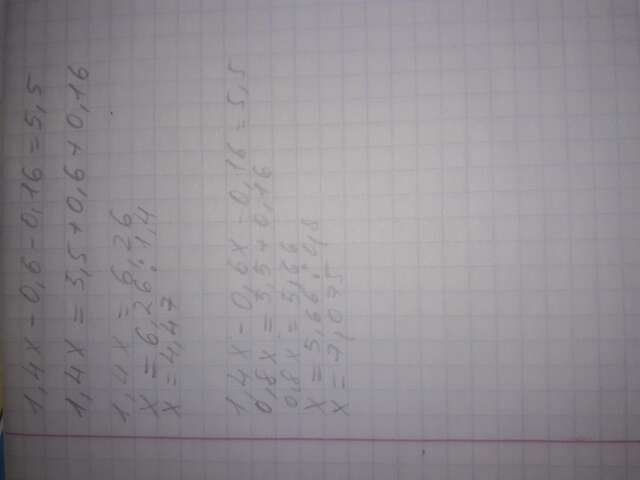 1,4x - 0,6 - 0,16 = 5,5
1,4x = 5,5 + 0,6 + 0,16
1,4x = 6,26
x = 6,26 : 1,4
x = 4,47
1,4x - 0,6x - 0,16 = 5,5
0,8x = 5,5 + 0,16
0,8x = 5,66
x = 5,66 : 0,8
x = 7,075